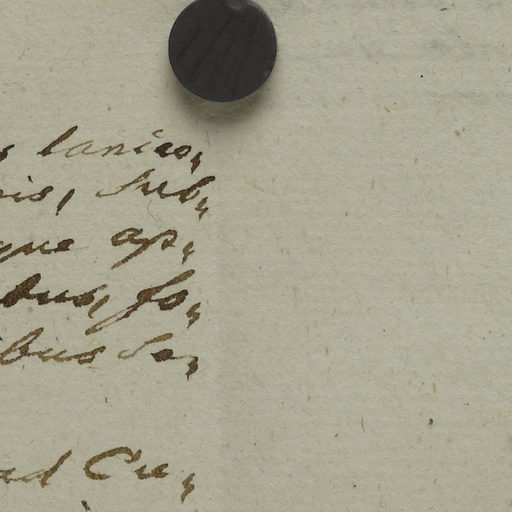 s lanceo„
nis, sub„
que ap„
ibus, fo„
ibus se„
ad Cu„